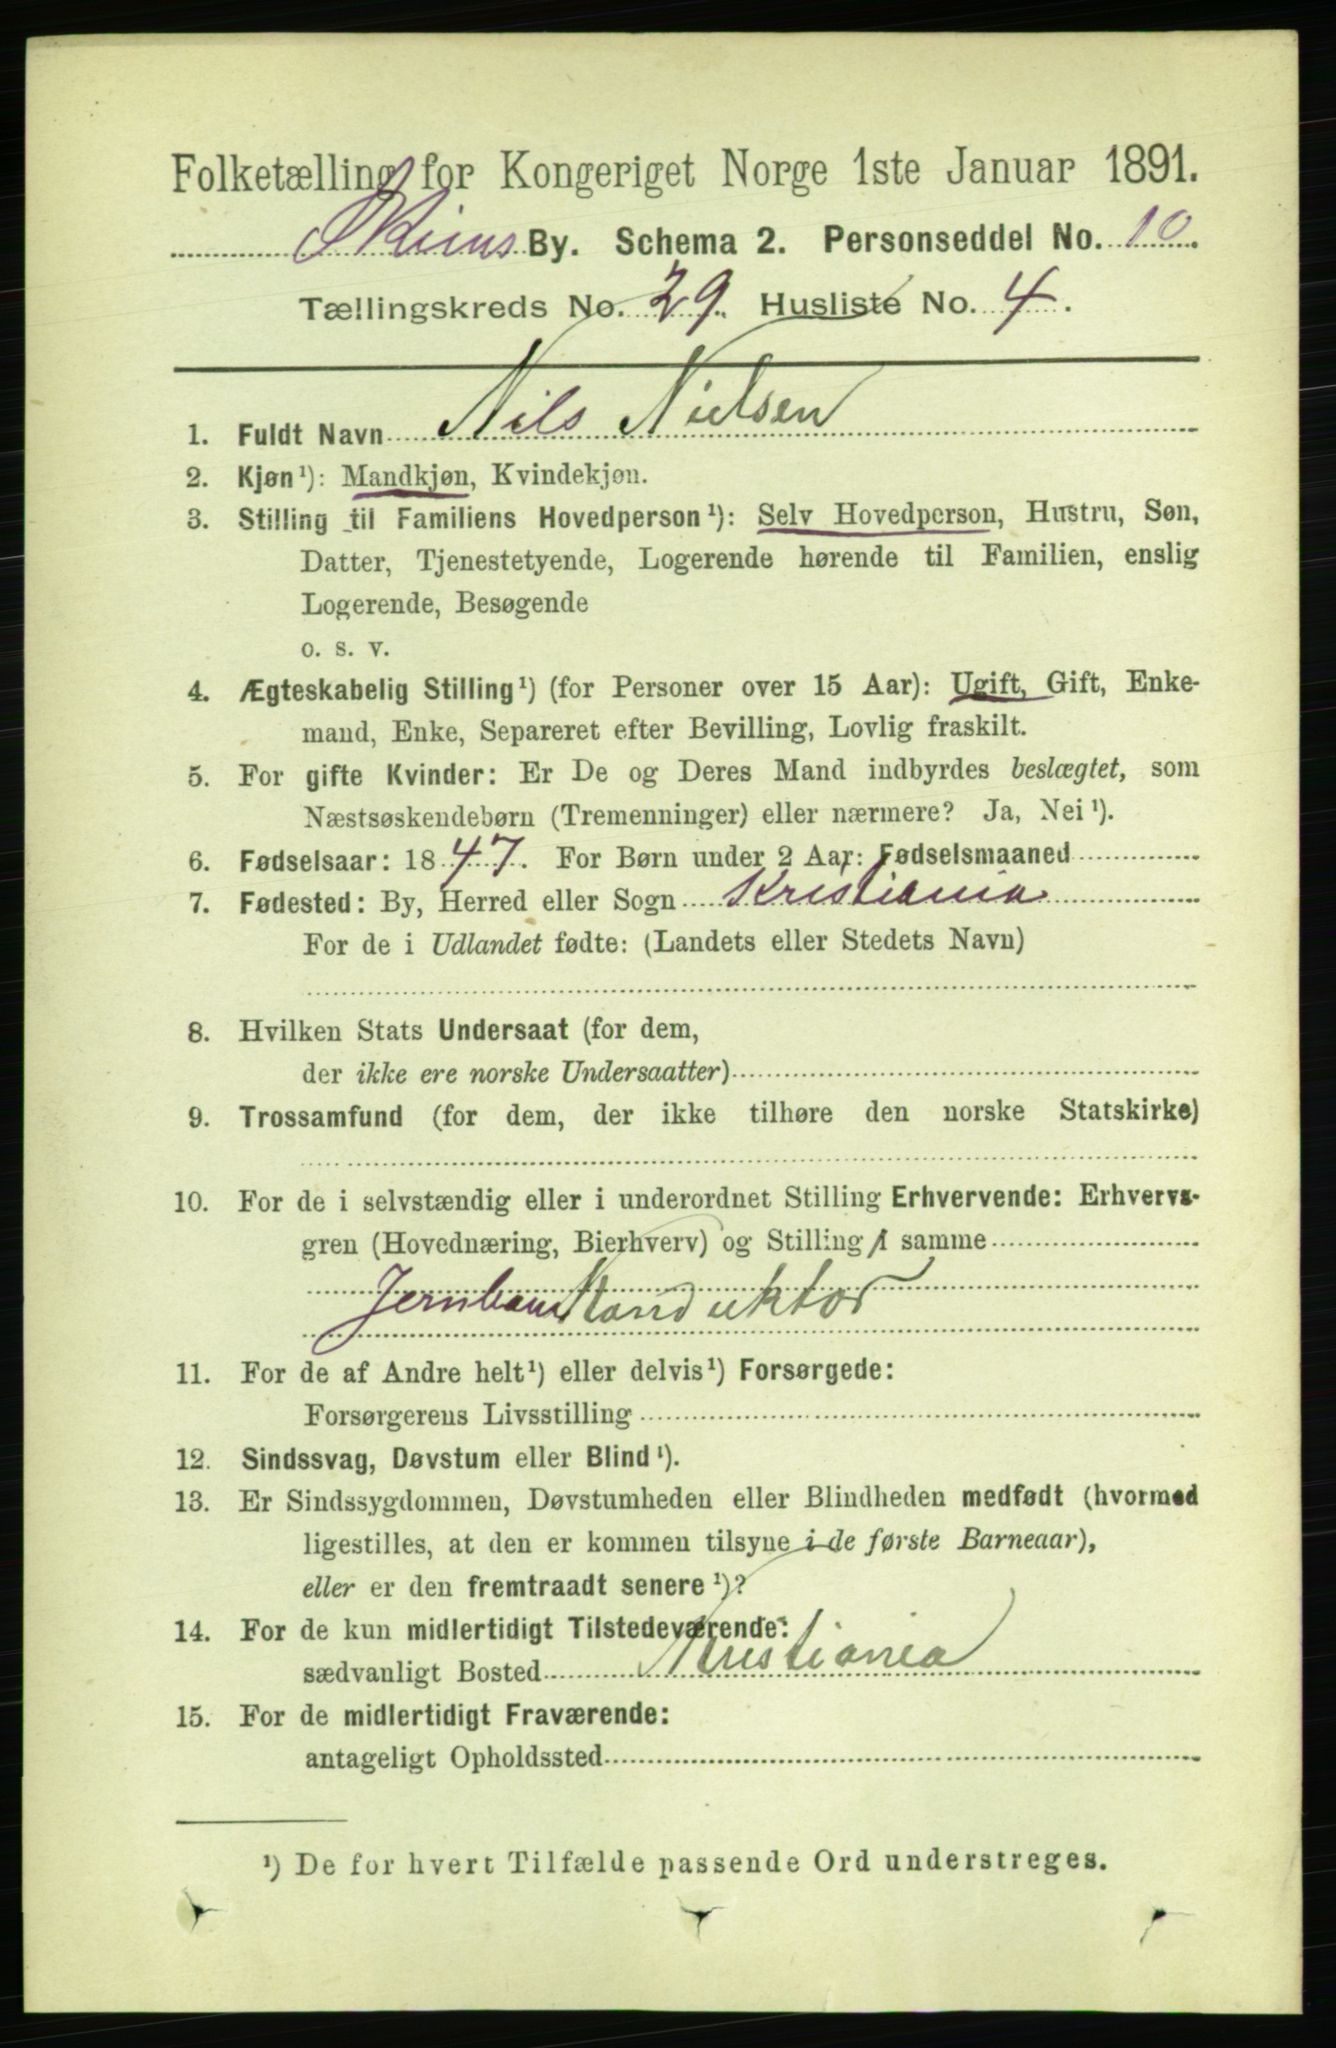 Folketælling for Kongeriget Norge 1ste Januar 1891.
Skiens By. Schema 2. Personseddel No. 10.
Tællingskreds No. 29. Husliste No. 4.
1. Fuldt Navn Nils Nielsen
2. Kjøn¹): Mandkjøn, Kvindekjøn.
3. Stilling til Familiens Hovedperson¹): Selv Hovedperson, Hustru, Søn,
Datter, Tjenestetyende, Logerende hørende til Familien, enslig
Logerende, Besøgende
o. s. v.
4. Ægteskabelig Stilling¹) (for Personer over 15 Aar): Ugift, Gift, Enke-
mand, Enke, Separeret efter Bevilling, Lovlig fraskilt.
5. For gifte Kvinder: Er De og Deres Mand indbyrdes beslægtet, som
Næstsøskendebørn (Tremenninger) eller nærmere? Ja, Nei¹).
6. Fødselsaar: 1847. For Børn under 2 Aar: Fødselsmaaned
7. Fødested: By, Herred eller Sogn Kristiania
For de i Udlandet fødte: (Landets eller Stedets Navn)
8. Hvilken Stats Undersaat (for dem,
der ikke ere norske Undersaatter)
9. Trossamfund (for dem, der ikke tilhøre den norske Statskirke)
10. For de i selvstændig eller i underordnet Stilling Erhvervende: Erhvervs-
gren (Hovednæring, Bierhverv) og Stilling i samme
Jernbane Konduktør
11. For de af Andre helt¹) eller delvis¹) Forsørgede:
Forsørgerens Livsstilling
12. Sindssvag, Døvstum eller Blind¹).
13. Er Sindssygdommen, Døvstumheden eller Blindheden medfødt (hvormed
ligestilles, at den er kommen tilsyne i de første Barneaar),
eller er den fremtraadt senere¹)?
14. For de kun midlertidigt Tilstedeværende:
sædvanligt Bosted Kristiania
15. For de midlertidigt Fraværende:
antageligt Opholdssted
¹) De for hvert Tilfælde passende Ord understreges.